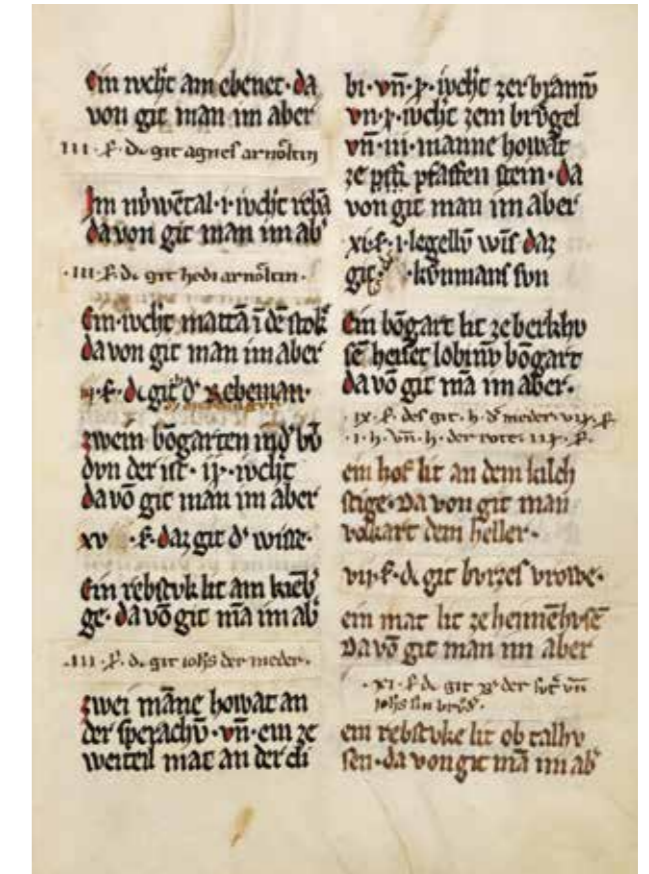 Ein ivcht am ebenet · da
von git man im aber
III · ẞ · dc git agnes arnoͤltin
Im nv̍wētal · i · ivcht rebā
davon git man im ab̓
· III · ẞ dc git hedi arnoͤltin ·
Ein · ivcht mattā ī dē stok
davon git man im aber
ẞ · dc git d̓ Rebeman ·
zwein boͮgarten
der ist · ivcht
davō git man im aber
xv · ẞ · daz git d̓ wisse ·
Ein rebstvk lit am
ge · davō git mā im ab̓
· III · ẞ · dc git johs der meder ·
zwei māne howat an
der sperachv̄ · vn̄ · ein ze
weiteil mat an der di
bi · vn̄ · ivcht zer
vn · ivcht zem brv̍gel
vn̄ · III · manne howat
ze pfaffen stein · da
von git man im aber
xi · ẞ · i · legellv̄ wīs daz
git · kvnmans svn
Ein boͮgart lit ze berkhv
sē heiset boͮgart
davō git mā im aber ·
· IX · ẞ · des git · h · d̓ meder · ẞ ·
· I · h · vn̄ · h · der rote · ẞ ·
ein hof lit an dem kilch
stige · Da von git man
volkart dem heller ·
vii · ẞ · dc git vrowe ·
ein mat lit ze hennēhvsē
Da vō git man im aber
· XI · ẞ dc git der vn̄
johs sin brvͦd̓ ·
ein rebstvke lit ob talhv
sen · da von git mā im ab̓